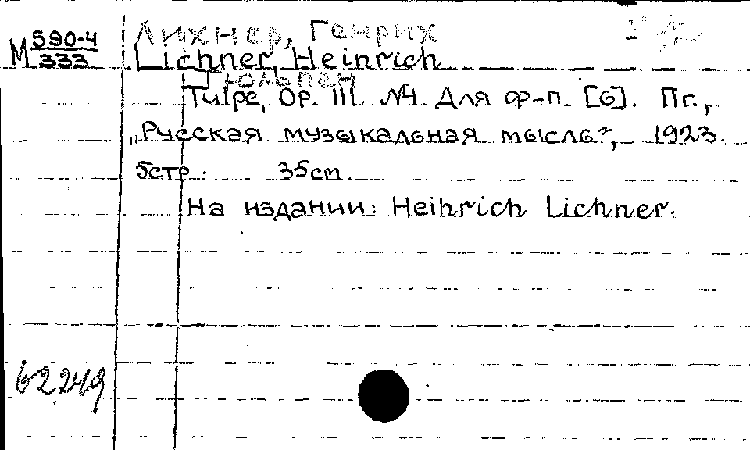 Лихнер, Генрих
М 590-4/333
Lichner, Heinrich
Тюльпен
Tulpe, Op. 111 №4 Для ф-п. [6]. Пг.,
„Русская музыкальная мысль", 1923.
5стр. 35cm.
На издании: Heinrich Lichner.
62249